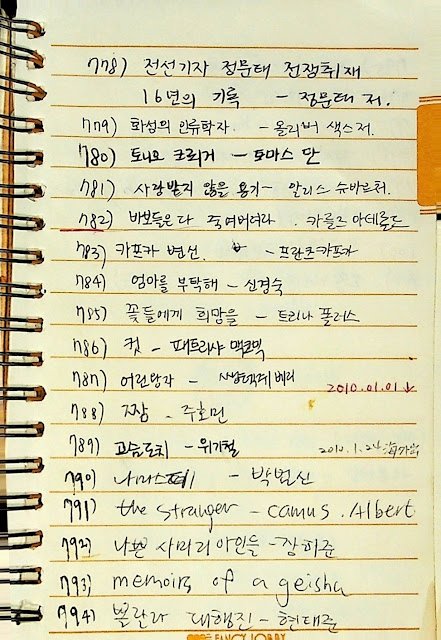 778) 전선기자 정문태 전쟁취재
16년의 기록 - 정문태 저.
779) 화성의 인류학자. - 올리버 색스 저.
780) 토니오 크뢰거 - 토마스 만
781) 사랑받지 않을 용기 - 알리스 슈바르처.
782) 바보들은 다 죽여버려라. 카를르 아데롤드
783) 카프카 변신. - 프란츠 카프카
784) 엄마를 부탁해 - 신경숙
785) 꽃들에게 희망을 - 트리나 폴러스
786) 컷 - 패트리샤 맥코믹
787) 어린왕자 - 생텍쥐페리 2010.01.01 ↓
788) 짬 - 주호민
789) 고슴도치 - 위기철 2010.1.24
790) 나마스테 - 박범신
791) the stranger - camus. Albert
792) 나쁜 사마리아인들 - 장하준
793) memoirs of a geisha
794) 뽈랄라 대행진 - 현태준